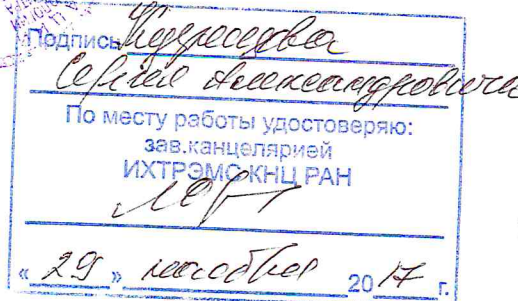 Подпись
Сергея Александровича
По месту работы удостоверяю:
зав.канцелярией
ИХТРЭМС КНЦ РАН
« 29 » ноября 2017 г.